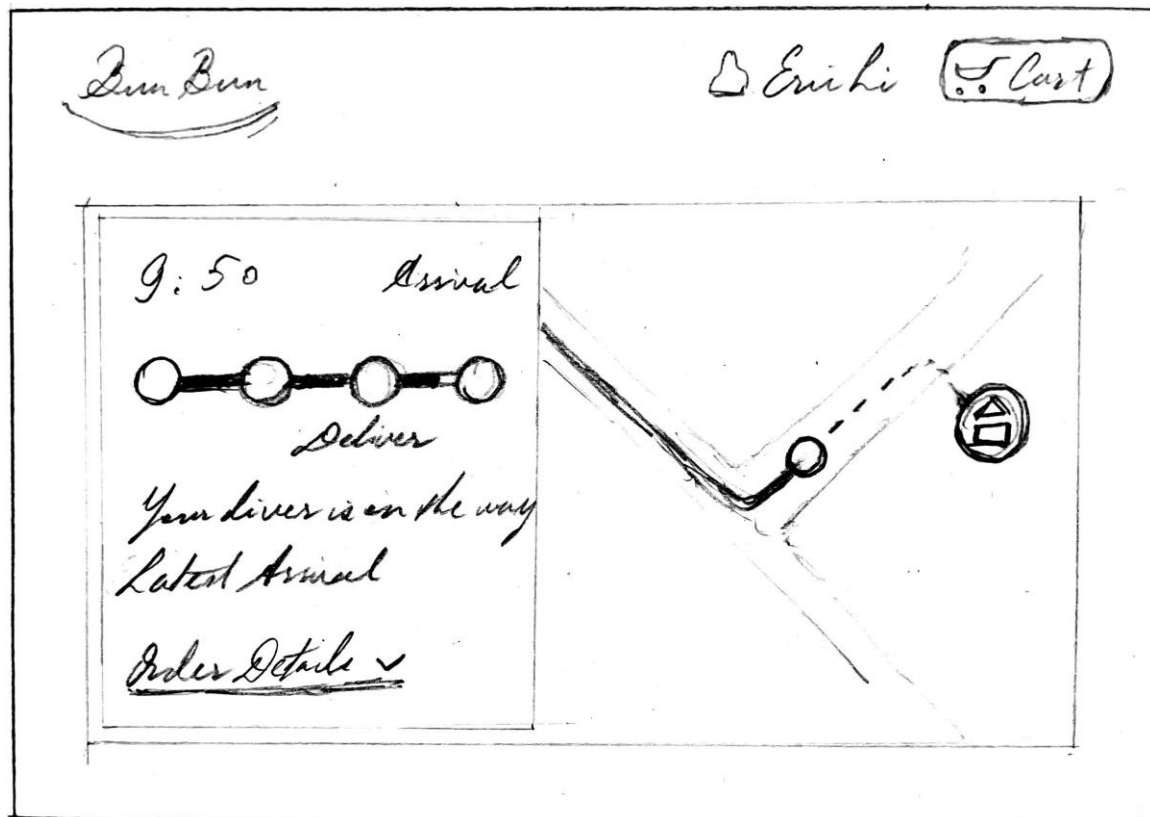 Bun Bun
Eric Li
Cart
9:50 Arrival
Deliver
Your diver is on the way
Latest Arrival
Order Details